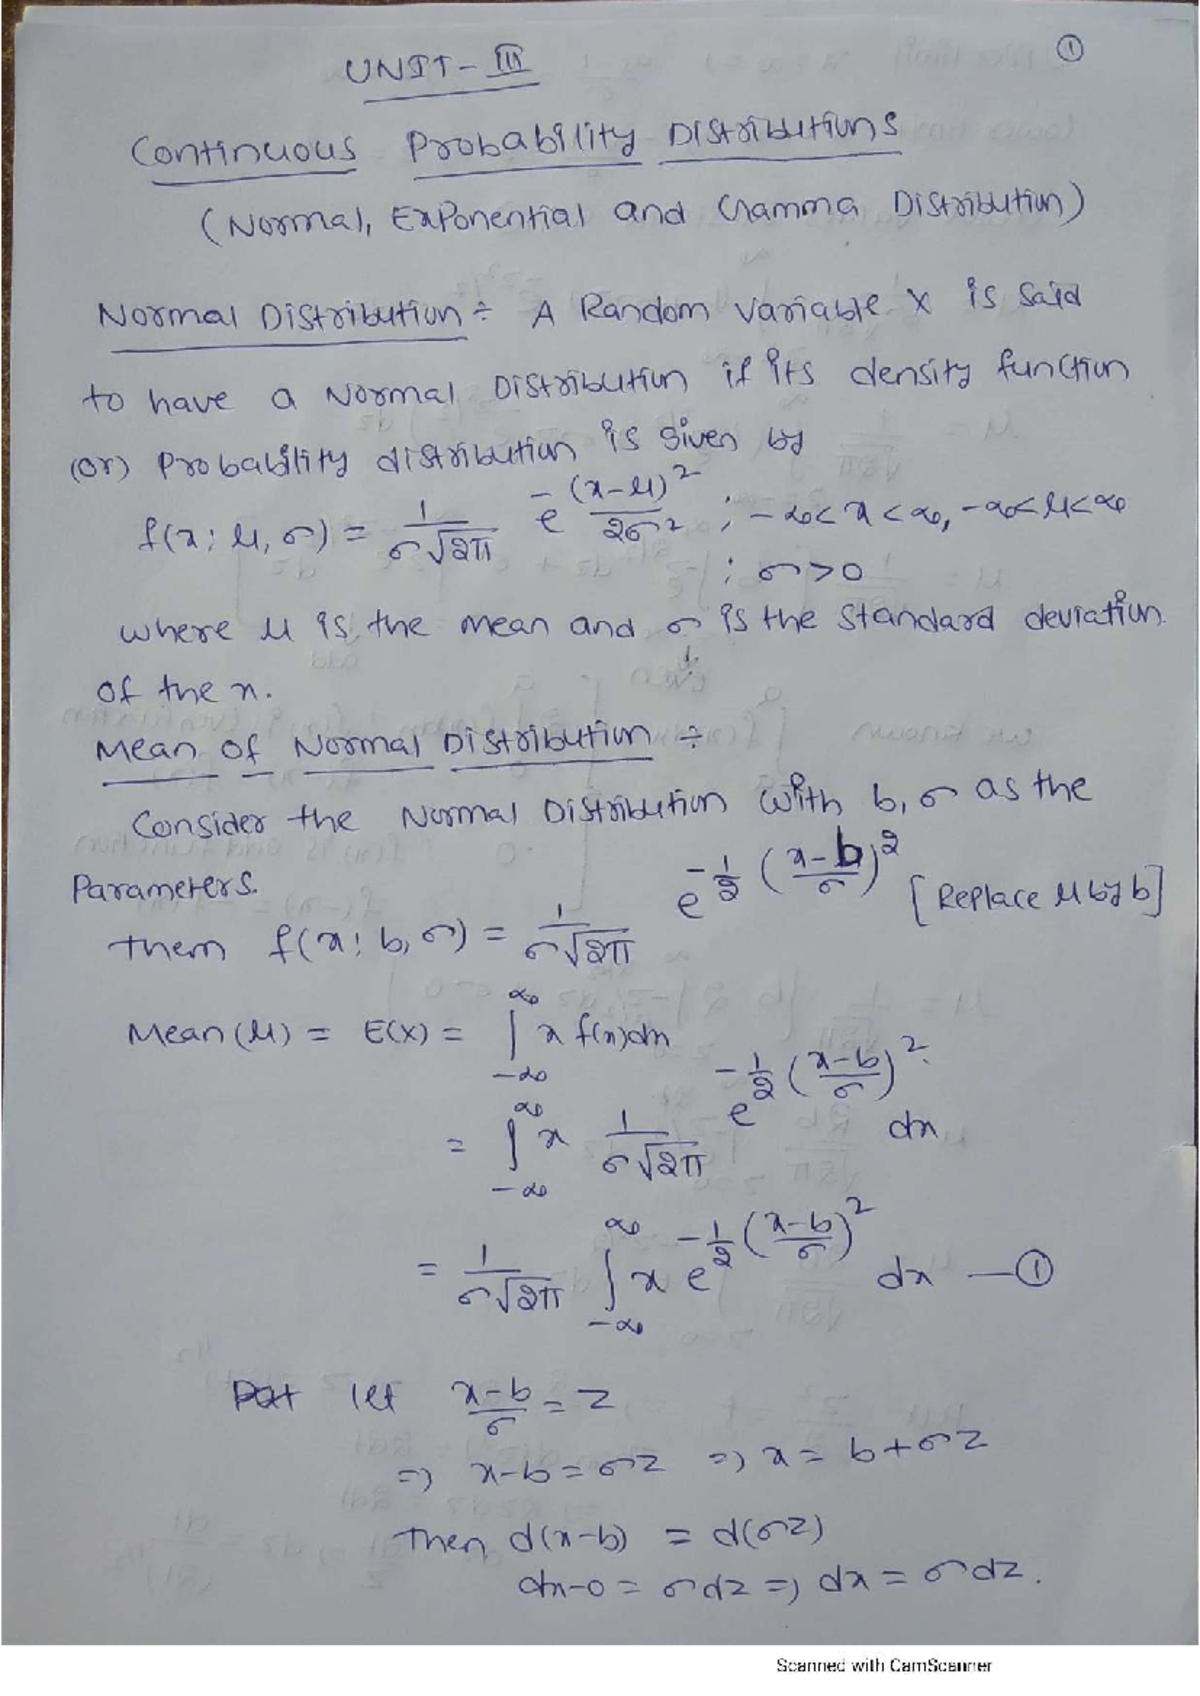 ①
UNIT-III
Continuous Probability Distributions
(Normal, Exponential and Gamma Distribution)
Normal Distribution ÷ A Random Variable X is said
to have a Normal Distribution if its density function
(or) Probability distribution is given by
f(x; μ, σ) = 1/(σ√2π) e^-(x-μ)²/2σ² ; -∞<x<∞, -∞<μ<∞
; σ>0
where μ is the mean and σ is the standard deviation
of the x.
Mean of Normal Distribution ÷
Consider the Normal Distribution with b, σ as the
Parameters.
then f(x; b, σ) = 1/(σ√2π) e^-1/2((x-b)/σ)² [Replace μ by b]
Mean(μ) = E(X) = ∫_{-∞}^{∞} x f(x)dx
= ∫_{-∞}^{∞} x 1/(σ√2π) e^-1/2((x-b)/σ)² dx
= 1/(σ√2π) ∫_{-∞}^{∞} x e^-1/2((x-b)/σ)² dx —①
let (x-b)/σ = z
⇒ x-b = σz ⇒ x = b+σz
Then d(x-b) = d(σz)
dx-0 = σdz ⇒ dx = σdz.
Scanned with CamScanner